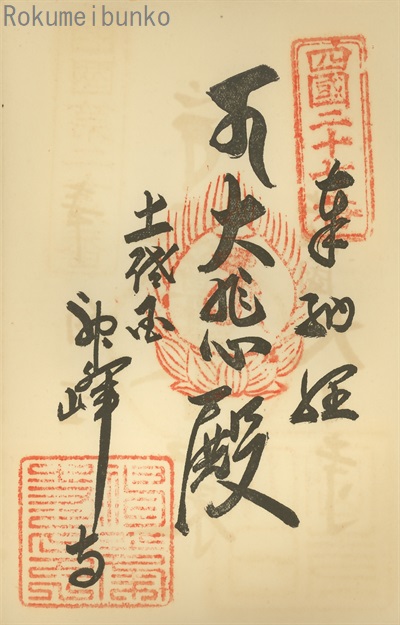 Rokumeibunko
四國二十七番
奉納経
大悲殿
土佐国
神峰寺